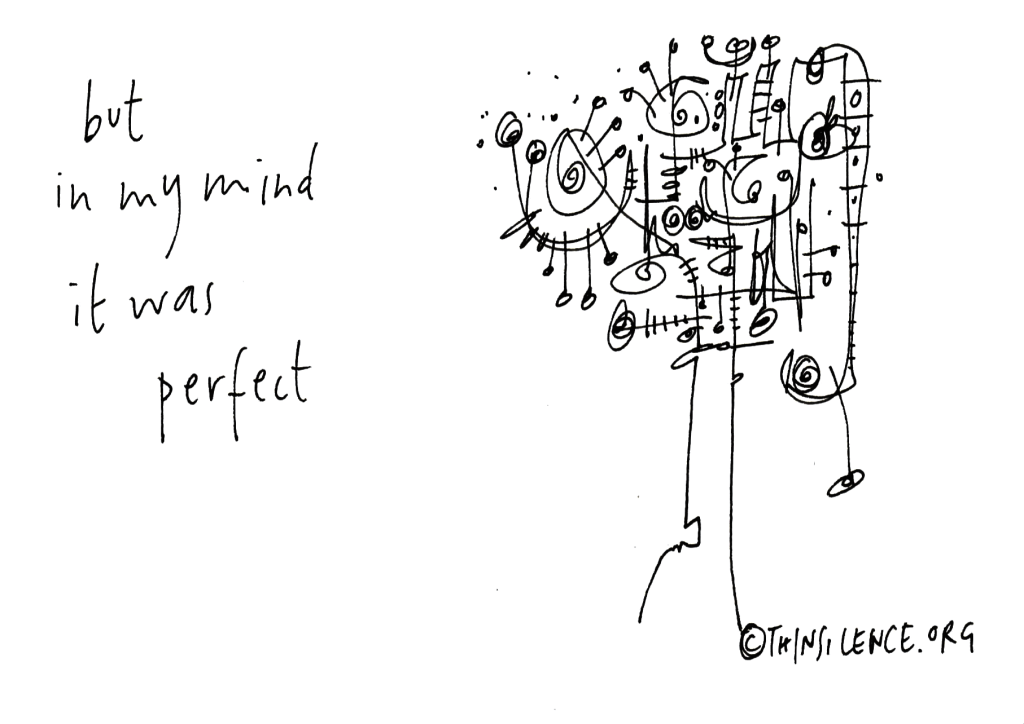 but
in my mind
it was
perfect
©THINSILENCE.ORG